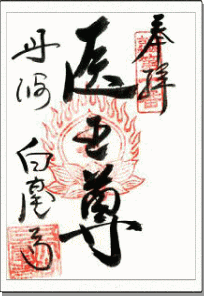 奉拝
医王尊
丹波 白毫寺